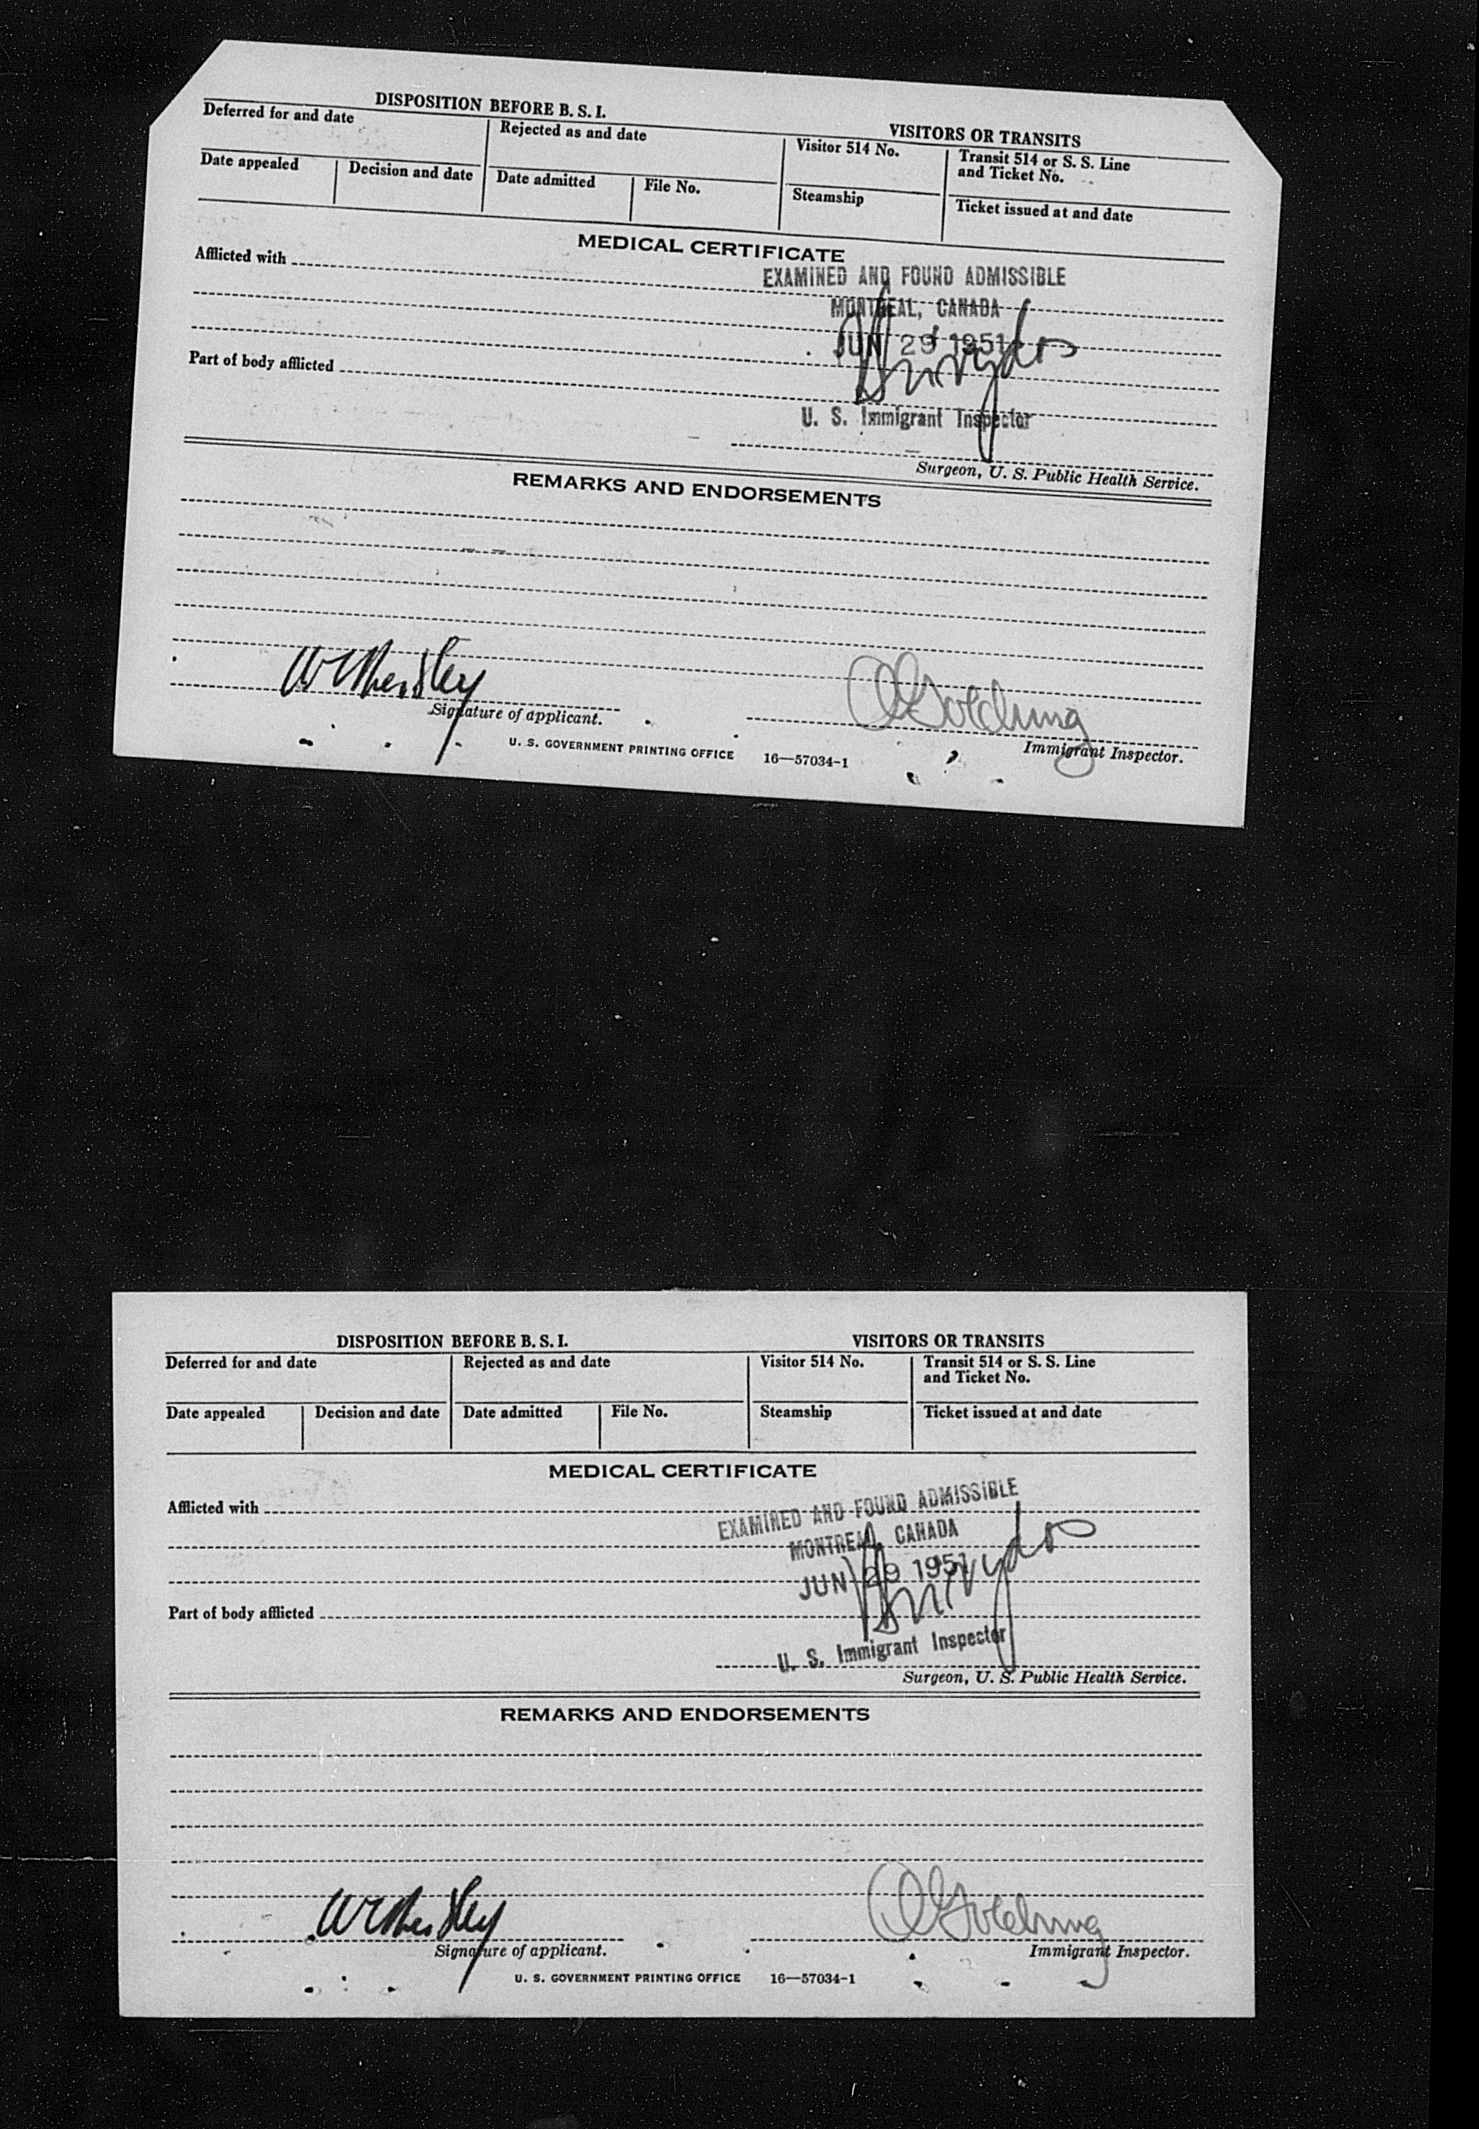 DISPOSITION BEFORE B. S. I.
VISITORS OR TRANSITS
Deferred for and date
Rejected as and date
Visitor 514 No.
Transit 514 or S. S. Line
and Ticket No.
Date appealed
Decision and date
Date admitted
File No.
Steamship
Ticket issued at and date
MEDICAL CERTIFICATE
Afflicted with
EXAMINED AND FOUND ADMISSIBLE
MONTREAL, CANADA
JUN 29 1951
Part of body afflicted
U. S. Immigrant Inspector
Surgeon, U. S. Public Health Service.
REMARKS AND ENDORSEMENTS
Golding
Signature of applicant.
Immigrant Inspector.
U. S. GOVERNMENT PRINTING OFFICE 16—57034-1
DISPOSITION BEFORE B. S. I.
VISITORS OR TRANSITS
Deferred for and date
Rejected as and date
Visitor 514 No.
Transit 514 or S. S. Line
and Ticket No.
Date appealed
Decision and date
Date admitted
File No.
Steamship
Ticket issued at and date
MEDICAL CERTIFICATE
Afflicted with
EXAMINED AND FOUND ADMISSIBLE
MONTREAL, CANADA
JUN 29 1951
Part of body afflicted
U. S. Immigrant Inspector
Surgeon, U. S. Public Health Service.
REMARKS AND ENDORSEMENTS
Golding
Signature of applicant.
Immigrant Inspector.
U. S. GOVERNMENT PRINTING OFFICE 16—57034-1